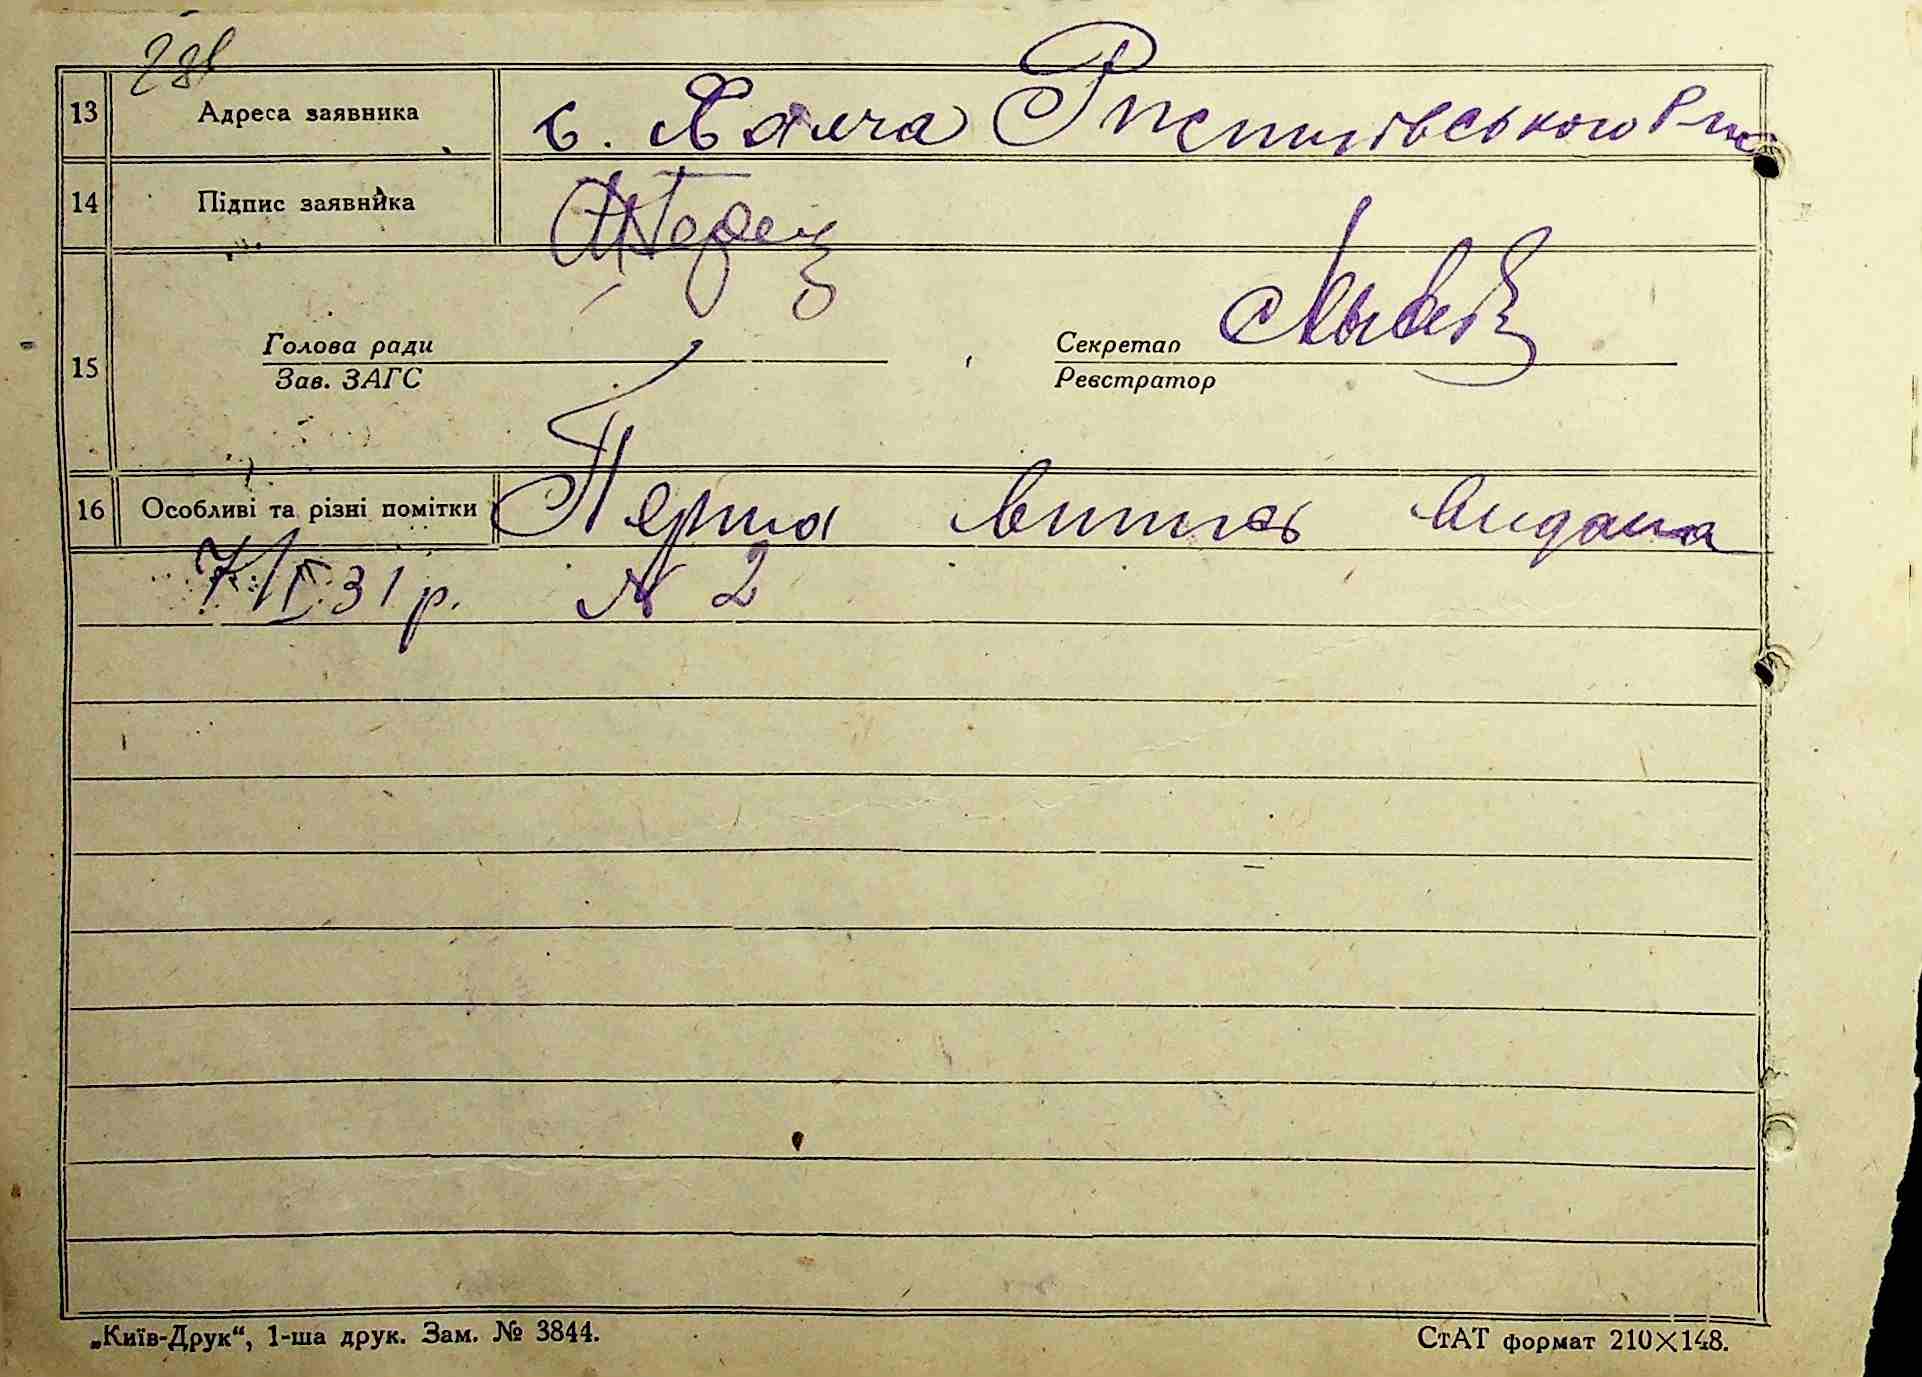 13 Адреса заявника с. Халча Ржищівського р-ну
14 Підпис заявника
15 Голова ради Секретар
Зав. ЗАГС Реєстратор
16 Особливі та різні помітки Перша випись видана
31 р. № 2
„Київ-Друк“, 1-ша друк. Зам. № 3844. СтАТ формат 210×148.